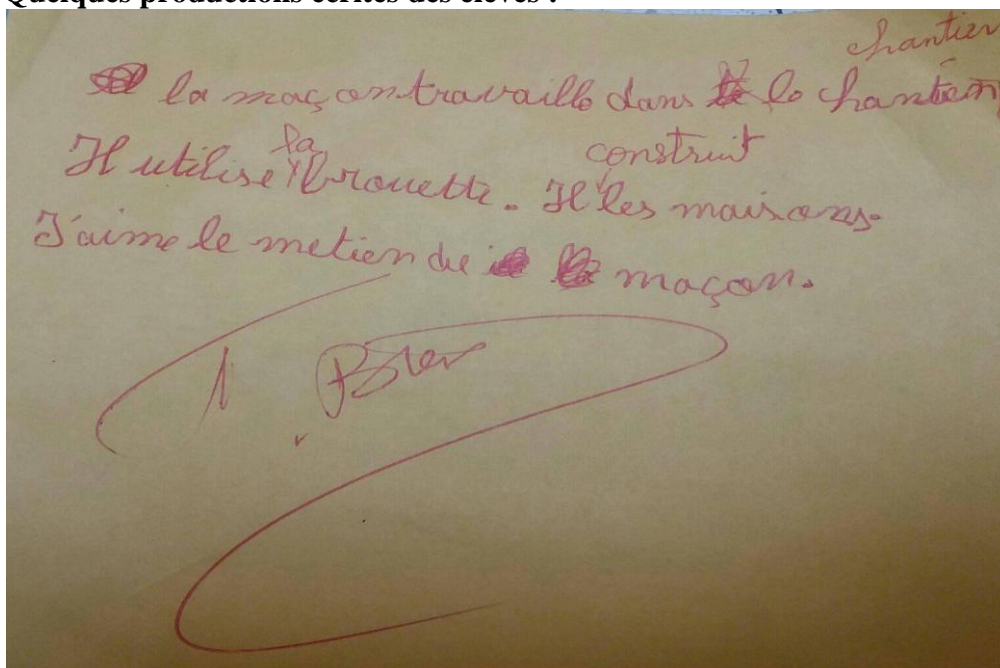 Quelques productions écrites des élèves :
chantier
la maçon travaille dans le chantien
la construit
Il utilise brouette. Il les maisons.
J'aime le metien de maçon.
T. Bien